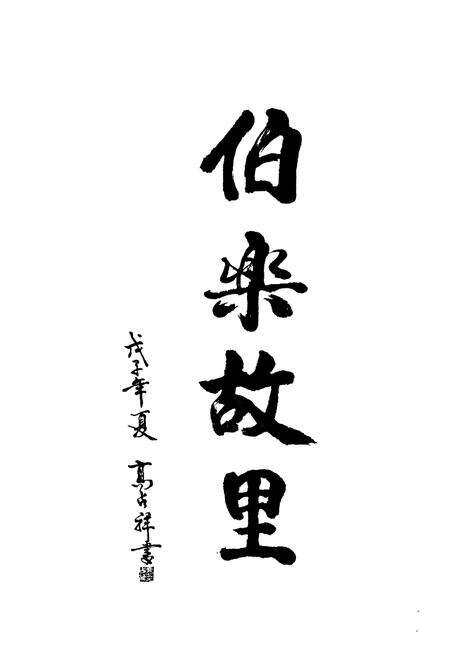 伯樂故里
戊子年夏 高占祥書